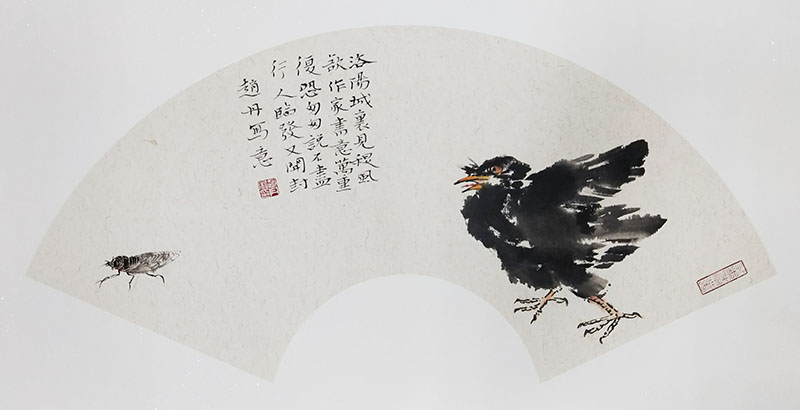 洛陽城裏見秋風
欲作家書意萬重
復恐匆匆說不盡
行人臨發又開封
趙丹寫意